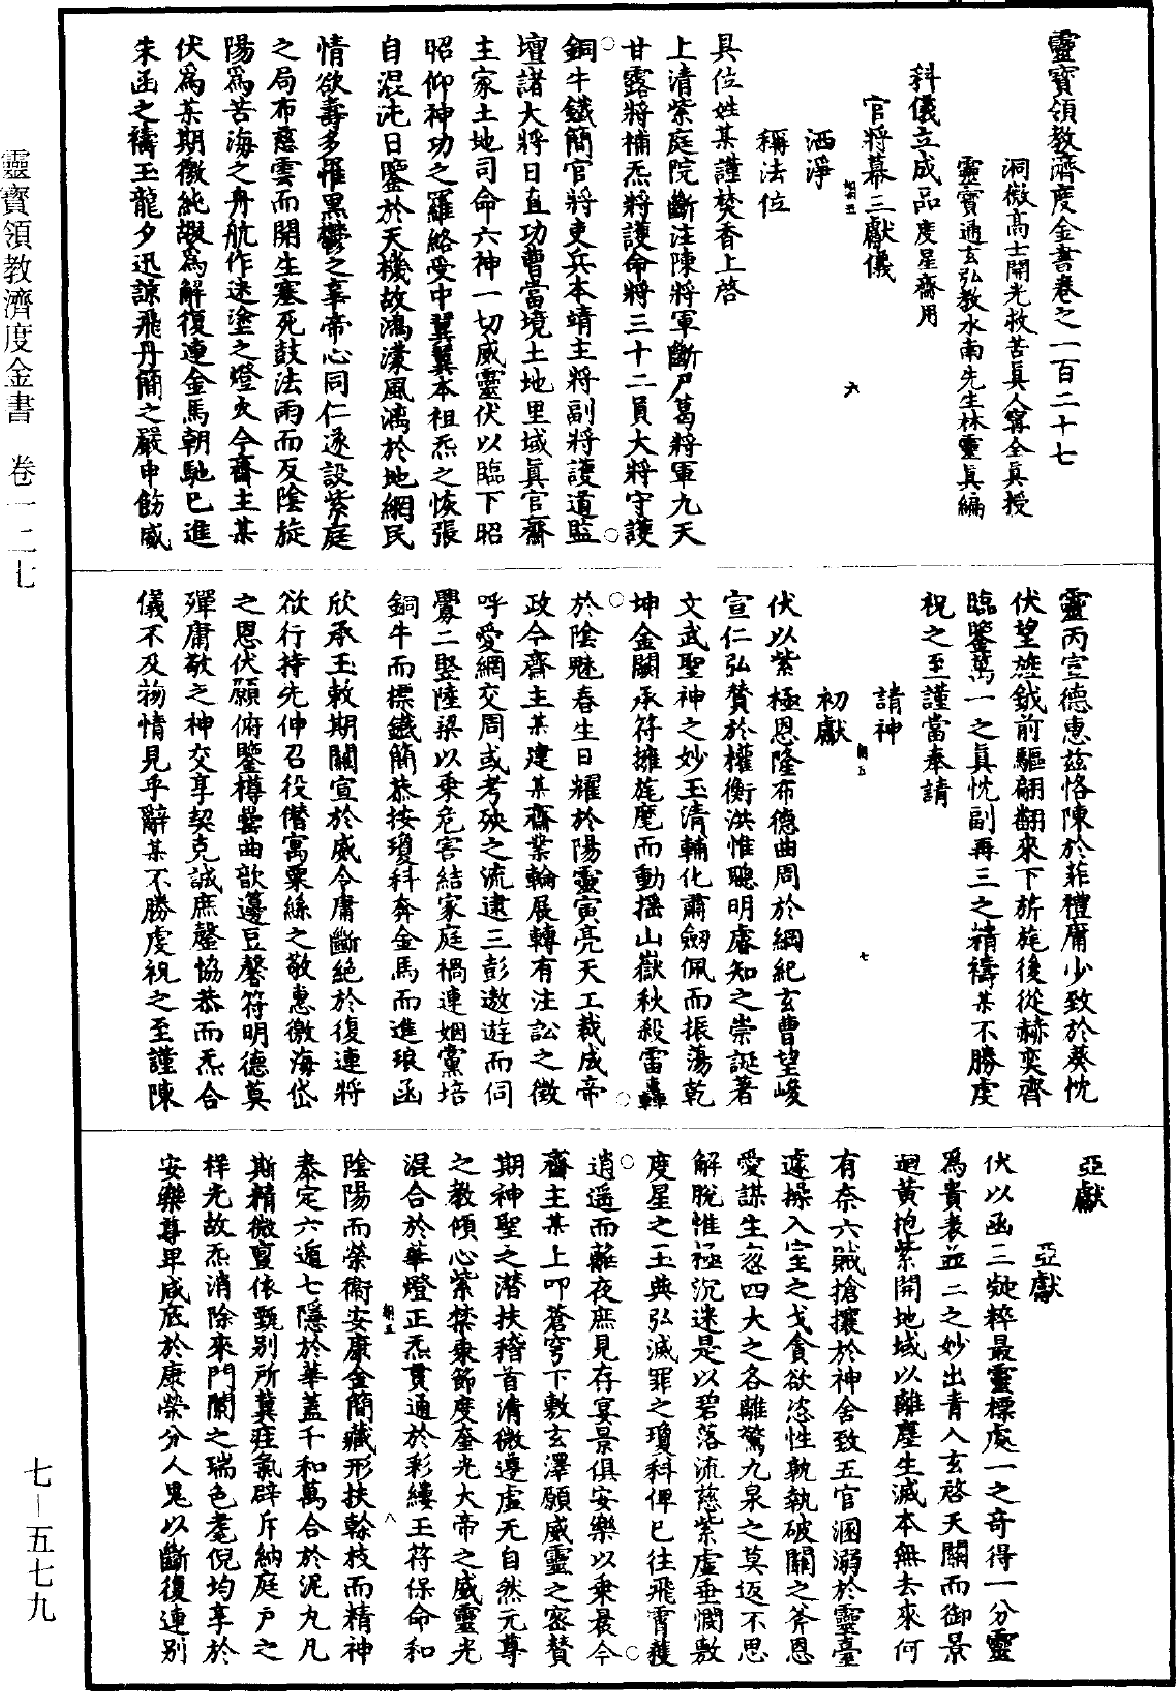 靈寶領教濟度金書卷之一百二十七
洞微高士開光救苦眞人甯全眞授
靈寶通玄弘教水南先生林靈眞編
科儀立成品度星齋用
官將幕三獻儀
洒淨
稱法位
具位姓某謹焚香上啓
上清紫庭院斷注陳將軍斷尸葛將軍九天
甘露將補炁將護命將三十二員大將守護
銅牛鐵簡官將吏兵本靖主將副將護道監
壇諸大將日直功曹當境土地里域眞官齋
主家土地司命六神一切威靈伏以臨下昭
昭仰神功之羅絡受中翼翼本祖炁之恢張
自混沌日鑿於天機故鴻濛風漓於地網民
情欲壽多罹黑鬱之辜帝心同仁遂設紫庭
之局布慈雲而開生塞死鼓法雨而反陰旋
陽爲苦海之舟航作迷塗之燈火今齋主某
伏爲某期徼純嘏爲解復連金馬朝馳已進
朱函之禱玉龍夕迅諒飛丹簡之嚴申飭威
靈丙宣德惠茲恪陳於菲禮庸少致於葵忱
伏望旌鉞前驅翩翻來下旂旄後從赫奕齊
臨鑒萬一之眞忱副再三之精禱某不勝虔
祝之至謹當奉請
請神
初獻
伏以紫極恩隆布德曲周於綱紀玄曹望峻
宣仁弘贊於權衡洪惟聰明睿知之崇誕著
文武聖神之妙玉清輔化肅劒佩而振蕩乾
坤金闕承符擁旄麾而動搖山嶽秋殺雷轟
於陰魅春生日耀於陽靈寅亮天工裁成帝
政今齋主某建某齋業輪展轉有注訟之徵
呼愛網交周或考殃之流逮三彭遨遊而伺
釁二竪陸梁以乗危害結家庭禍連姻黨培
銅牛而標鐵簡恭按瓊科奔金馬而進琅函
欣承玉敕期關宣於威令庸斷絶於復連將
欲行持先伸召役僭寓粟絲之敬惠徼海岱
之恩伏願俯鑒樽罍曲歆籩豆馨符明德莫
殫庸敬之神交享契克誠庶罄協恭而炁合
儀不及物情見乎辭某不勝虔祝之至謹陳
亞獻
亞獻
伏以函三凝粹最靈標處一之奇得一分靈
爲貴表並二之妙出青入玄啓天關而御景
迴黄抱紫開地域以離塵生滅本無去來何
有奈六賊搶攘於神舍致五官溷溺於靈臺
遽操入室之戈貪欲恣性執執破關之斧恩
愛謀生忽四大之各離驚九泉之莫返不思
解脫惟極沉迷是以碧落流慈紫虛垂憫敷
度星之玉典弘滅罪之瓊科俾已往飛霄獲
逍遥而離夜庶見存宴景俱安樂以乗晨今
齋主某上叩蒼穹下敷玄澤願威靈之密賛
期神聖之潛扶稽首清微邊虛无自然元尊
之教傾心紫禁秉節度奎光大帝之威靈光
混合於華燈正炁貫通於彩縷王符保命和
陰陽而榮衞安康金簡藏形扶幹枝而精神
泰定六遁七隱於華蓋千和萬合於泥丸凡
斯精微亶依甄別所冀疰氣辟斥納庭戶之
祥光故炁消除來門闌之瑞色耄倪均享於
安樂尊卑咸底於康榮分人鬼以斷復連別
靈寶領教濟度金書　卷一二七
七—五七九
六
七
八